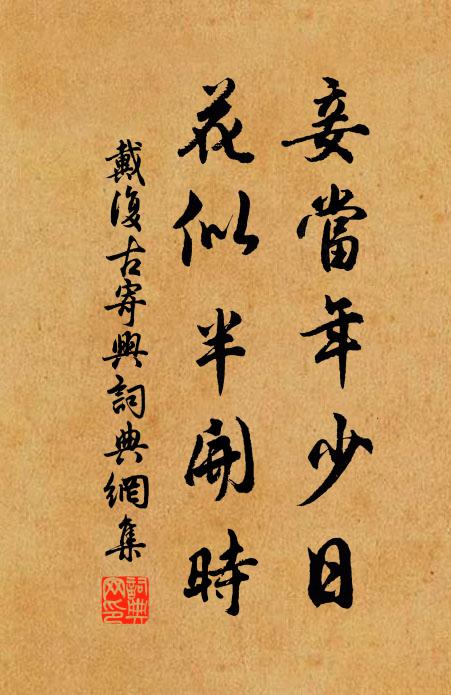 妾當年少日
花似半開時
戴復古寄興詞典網集
詞典网印